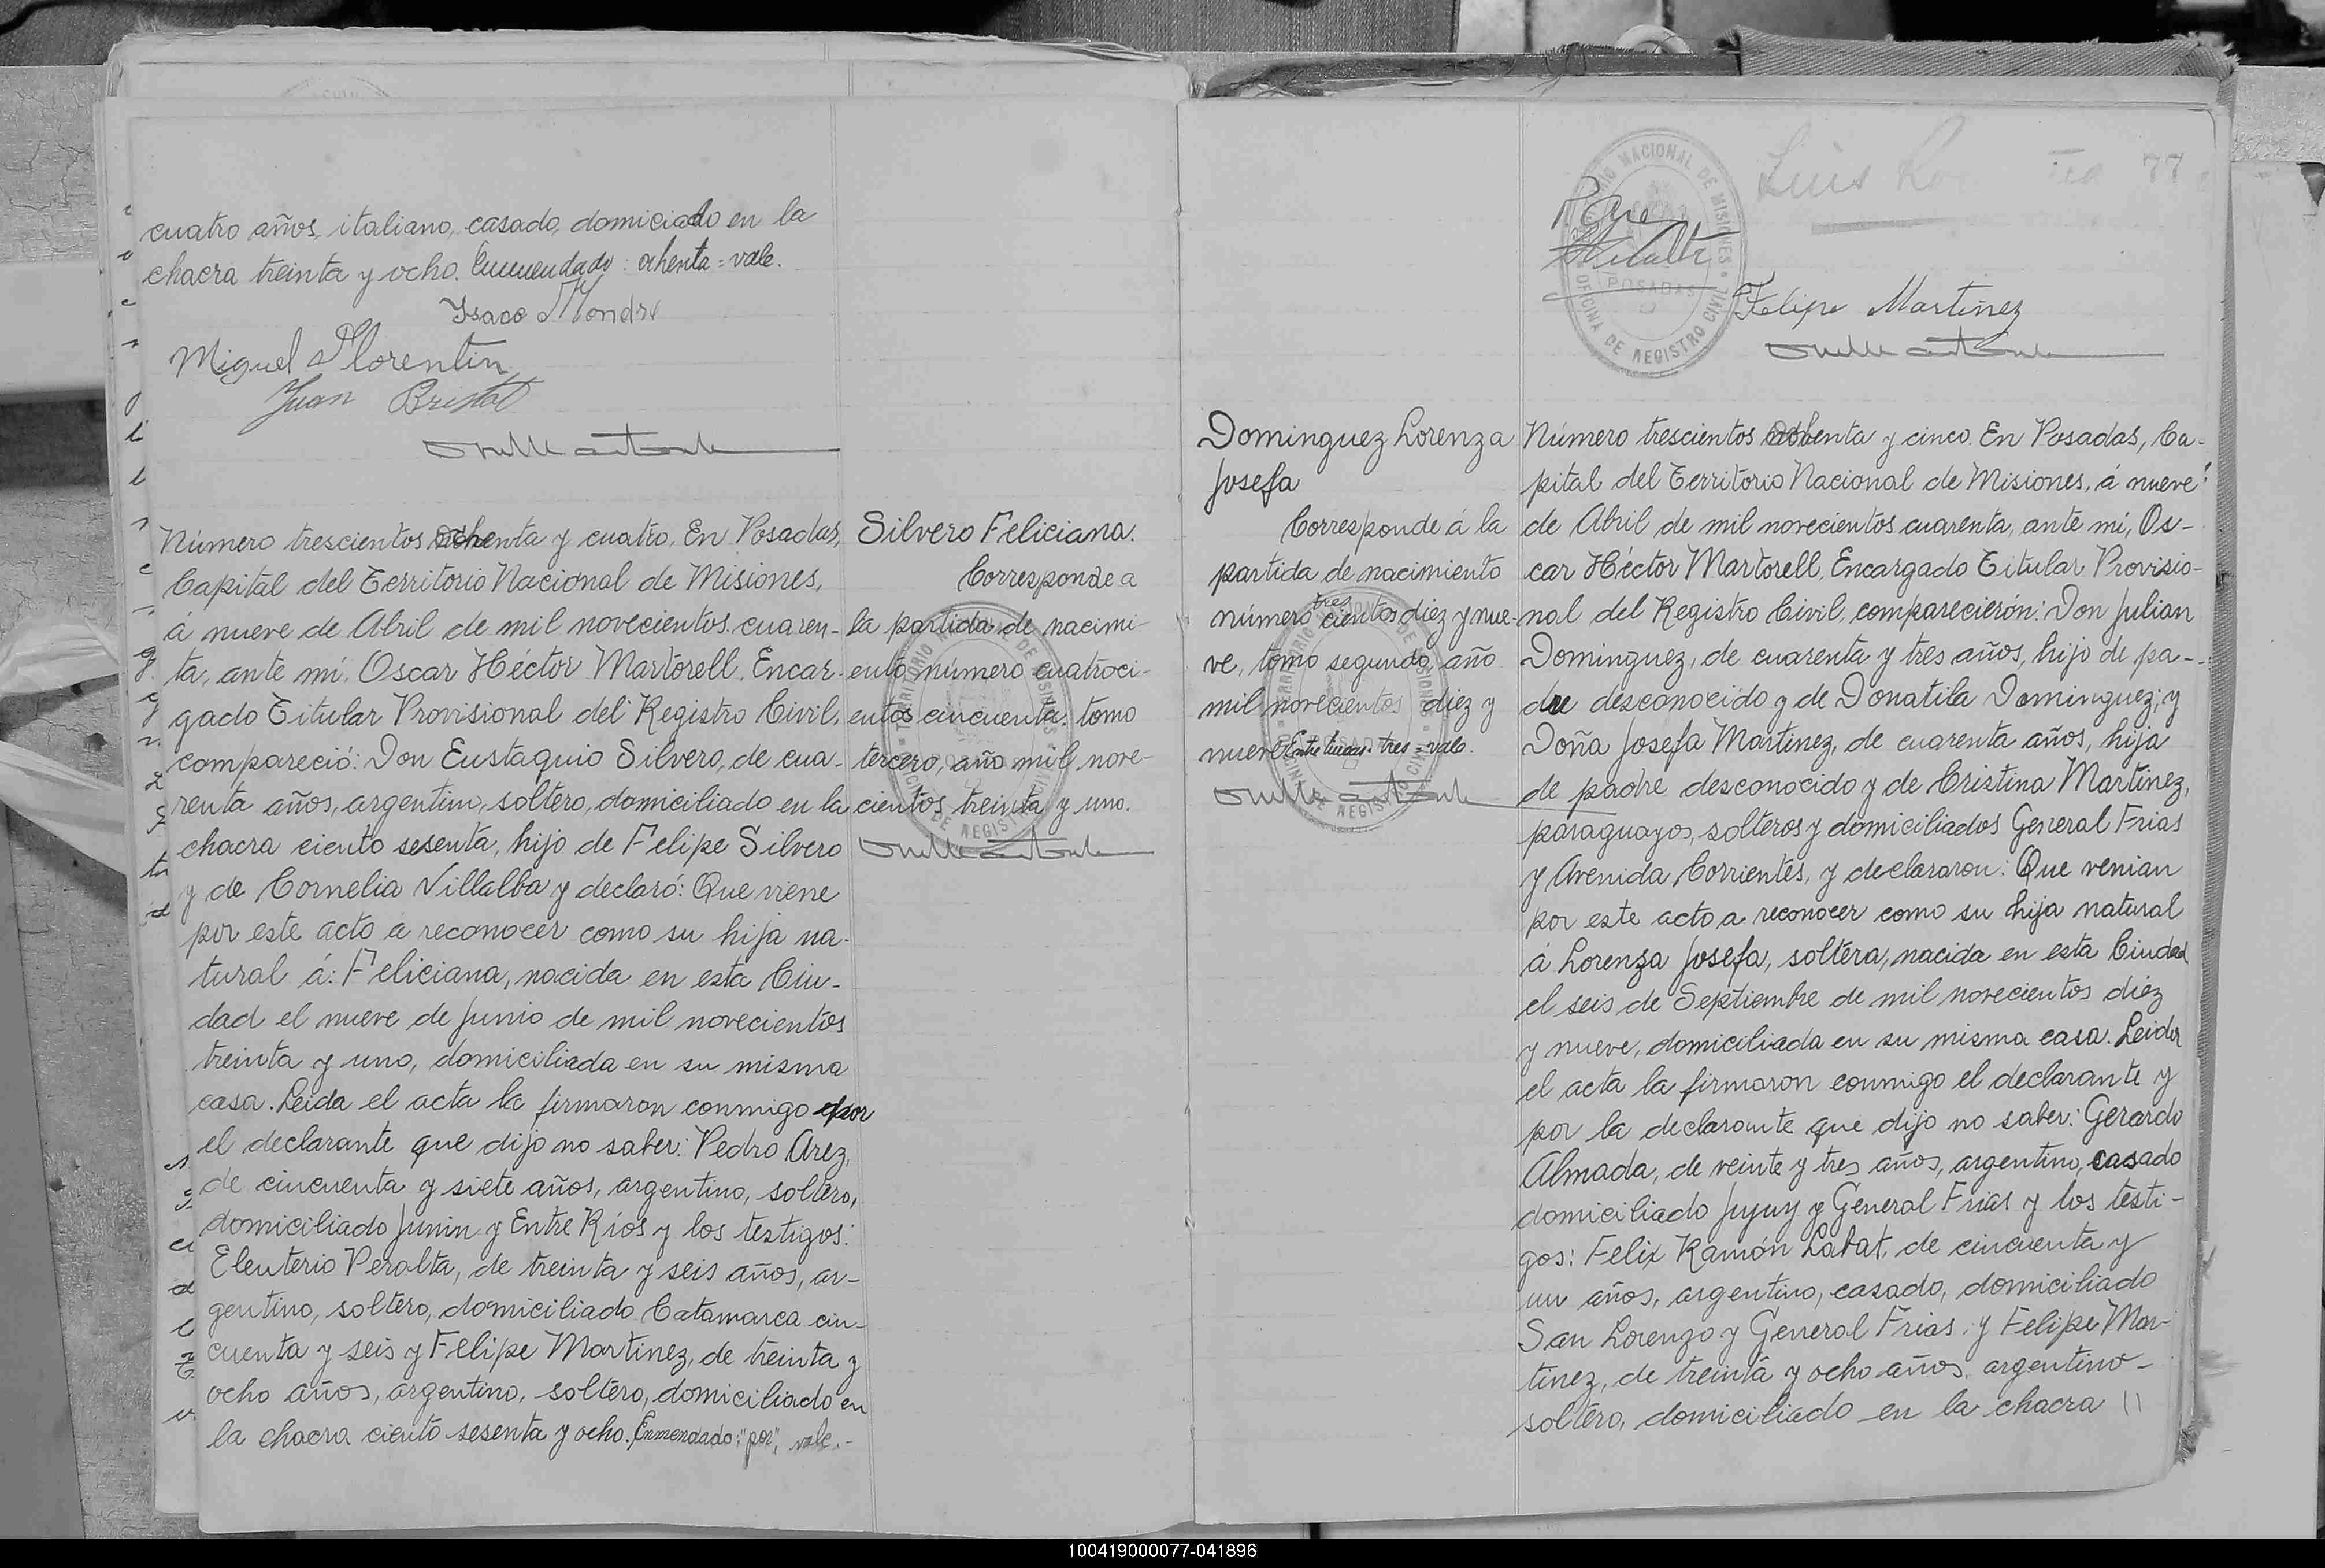 cuatro años, italiano, casado, domiciado en la
chacra treinta y ocho. Enmendado: ochenta = vale.
Miguel Florentin
Juan Bristol
Número trescientos ochenta y cuatro. En Posadas,
Capital del Territorio Nacional de Misiones,
á nueve de Abril de mil novecientos cuaren-
ta, ante mí, Oscar Héctor Martorell, Encar-
gado Titular Provisional del Registro Civil,
compareció: Don Eustaquio Silvero, de cua-
renta años, argentino, soltero, domiciliado en la
chacra ciento sesenta, hijo de Felipe Silvero
y de Cornelia Villalba y declaró: Que viene
por este acto a reconocer como su hija na-
tural á: Feliciana, nacida en esta Ciu-
dad el nueve de Junio de mil novecientos
treinta y uno, domiciliada en su misma
casa. Leida el acta la firmaron conmigo por
el declarante que dijo no saber: Pedro Arez,
de cincuenta y siete años, argentino, soltero,
domiciliado Junin y Entre Ríos y los testigos:
Eleuterio Peralta, de treinta y seis años, ar-
gentino, soltero, domiciliado Catamarca cin-
cuenta y seis y Felipe Martinez, de treinta y
ocho años, argentino, soltero, domiciliado en
la chacra ciento sesenta y ocho. Enmendado: "por", vale.-
Silvero Feliciana.
Corresponde a
la partida de nacimi-
ento número cuatroci-
entos cincuenta, tomo
tercero, año mil nove-
cientos treinta y uno.
77
TERRITORIO NACIONAL DE MISIONES
POSADAS
OFICINA DE REGISTRO CIVIL
Felipe Martinez
Dominguez Lorenza
Josefa
Corresponde á la
partida de nacimiento
número tres cientos diez y nue-
ve, tomo segundo, año
mil novecientos diez y
nueve Entre lineas: tres = vale.
Número trescientos ochenta y cinco. En Posadas, Ca-
pital del Territorio Nacional de Misiones, á nueve
de Abril de mil novecientos cuarenta, ante mí, Os-
car Héctor Martorell, Encargado Titular Provisio-
nal del Registro Civil, comparecierón: Don Julian
Dominguez, de cuarenta y tres años, hijo de pa-
dre desconocido y de Donatila Dominguez; y
Doña Josefa Martinez, de cuarenta años, hija
de padre desconocido y de Cristina Martinez,
paraguayos, solteros y domiciliados General Frias
y Avenida Corrientes, y declararon: Que venian
por este acto a reconocer como su hija natural
á Lorenza Josefa, soltera, nacida en esta Ciudad
el seis de Septiembre de mil novecientos diez
y nueve, domiciliada en su misma casa. Leida
el acta la firmaron conmigo el declarante y
por la declarante que dijo no saber: Gerardo
Almada, de veinte y tres años, argentino, casado
domiciliado Jujuy y General Frias y los testi-
gos: Felix Ramón Labat, de cincuenta y
un años, argentino, casado, domiciliado
San Lorenzo y General Frias, y Felipe Mar-
tinez, de treinta y ocho años, argentino-
soltero, domiciliado en la chacra
100419000077-041896